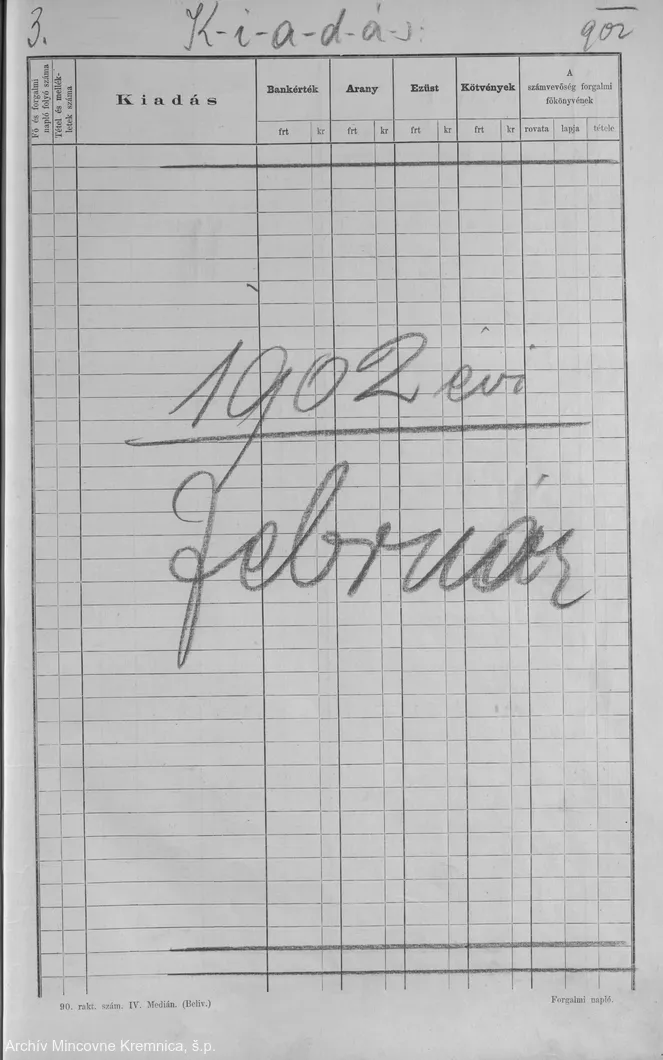 3. K-i-a-d-á-s: 902
Fő és forgalmi napló folyó száma
Tétel és mellékletek száma
Kiadás
Bankérték
Arany
Ezüst
Kötvények
A
számvevőség forgalmi
főkönyvének
frt kr frt kr frt kr frt kr rovata lapja tétele
1902 évi
Február
90. rakt. szám. IV. Medián. (Beliv.)
Forgalmi napló.
Archív Mincovne Kremnica, š.p.